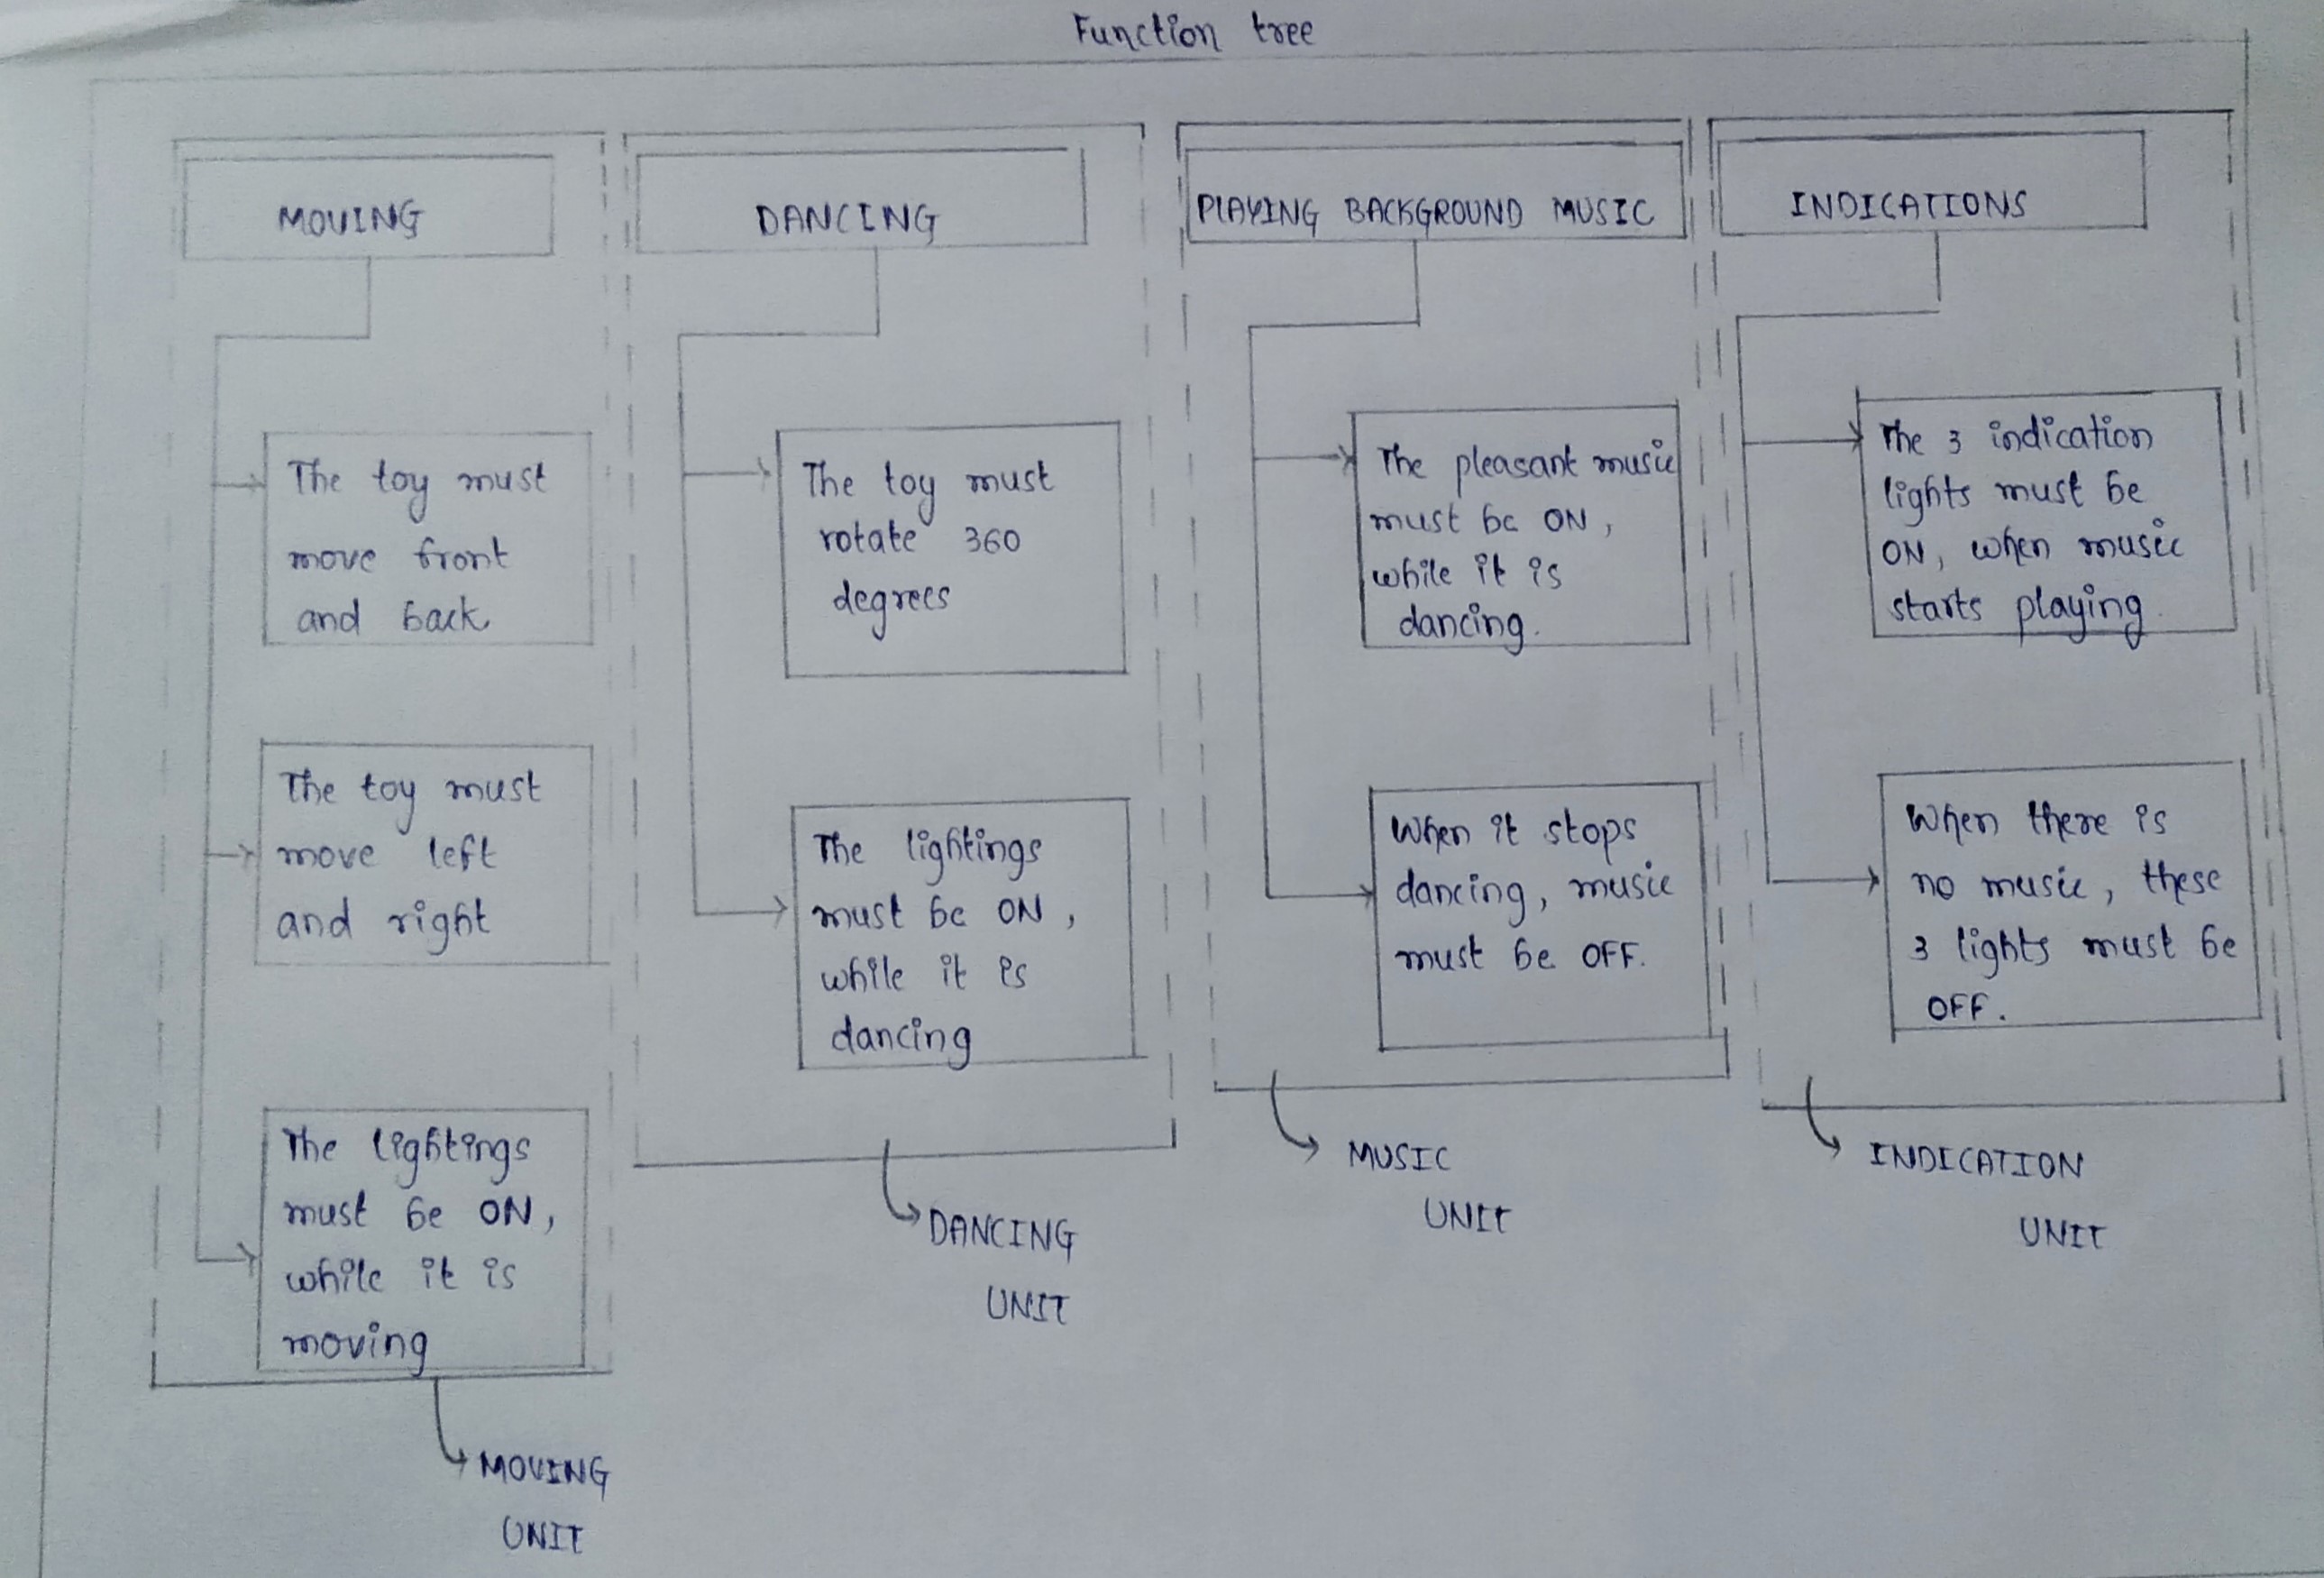 Function tree
MOVING
The toy must
move front
and back
The toy must
move left
and right
The lightings
must be ON,
while it is
moving
MOVING
UNIT
DANCING
The toy must
rotate 360
degrees
The lightings
must be ON,
while it is
dancing
DANCING
UNIT
PLAYING BACKGROUND MUSIC
The pleasant music
must be ON,
while it is
dancing.
When it stops
dancing, music
must be OFF.
MUSIC
UNIT
INDICATIONS
The 3 indication
lights must be
ON, when music
starts playing.
When there is
no music, these
3 lights must be
OFF.
INDICATION
UNIT